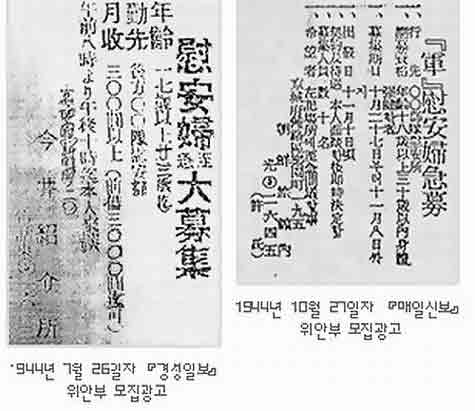 慰安婦至急大募集
年齡 一七歲以上廿三歲迄
勤先 後方〇〇隊慰安部
月收 三〇〇圓以上(前借三〇〇〇圓迄可)
午前八時より午後十時迄本人來談
今井紹介所
1944년 7월 26일자 『경성일보』
위안부 모집광고
『軍』慰安婦急募
一、行先 〇〇部隊慰安所
一、應募資格 年齡十八歲以上三十歲以內身體强健者
一、募集期日 十月二十七日부터十一月八日外지
一、出發日 十一月十日頃
一、契約及待遇 本人面談後即時決定함
一、募集人員 數十名
一、希望者 左記場所에至急問議할事
町一九五
朝鮮旅館內
光③二六四五
(許氏)
1944년 10월 27일자 『매일신보』
위안부 모집광고